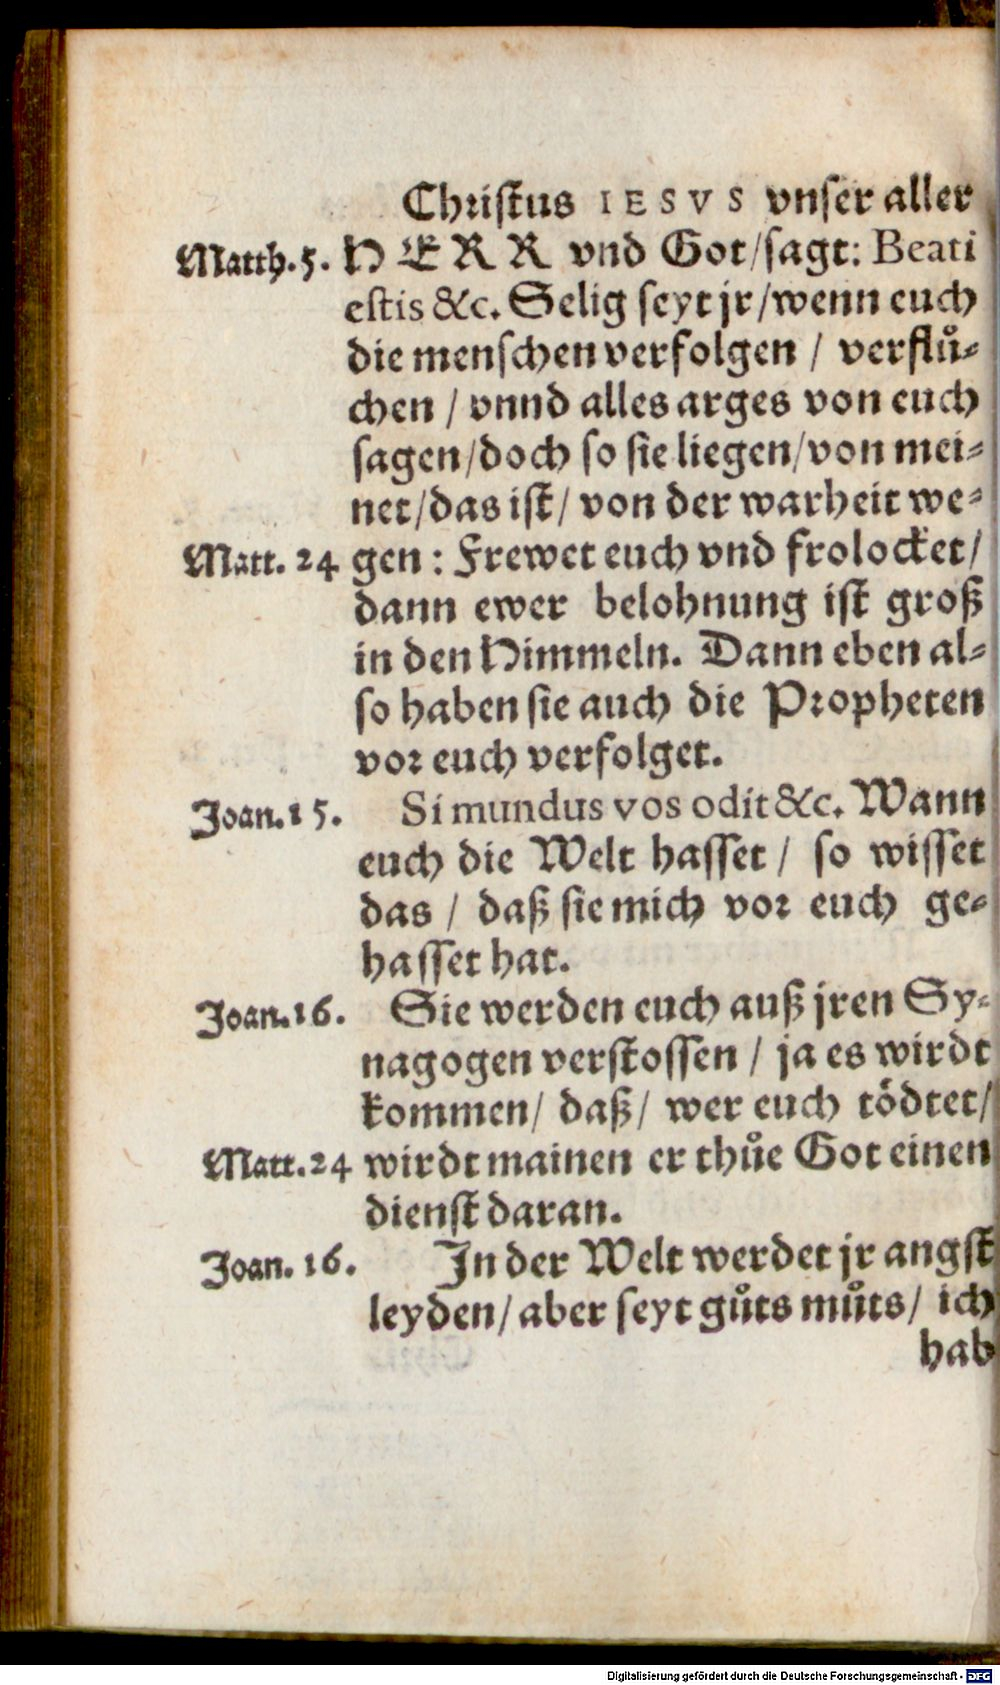 Christus IESVS vnser aller
Matth. 5. HERR vnd Got/sagt: Beati
estis &c. Selig seyt jr/wenn euch
die menschen verfolgen / verflů-
chen / vnnd alles arges von euch
sagen/doch so sie liegen/von mei-
net/das ist/ von der warheit we-
Matt. 24 gen: Frewet euch vnd frolocket/
dann ewer belohnung ist groß
in den Himmeln. Dann eben al-
so haben sie auch die Propheten
vor euch verfolget.
Joan. 15. Si mundus vos odit &c. Wann
euch die Welt hasset / so wisset
das / daß sie mich vor euch ge-
hasset hat.
Joan. 16. Sie werden euch auß jren Sy-
nagogen verstossen / ja es wirdt
kommen/ daß/ wer euch tödtet/
Matt. 24 wirdt mainen er thůe Got einen
dienst daran.
Joan. 16. In der Welt werdet jr angst
leyden/ aber seyt gůts můts/ ich
hab
Digitalisierung gefördert durch die Deutsche Forschungsgemeinschaft - DFG